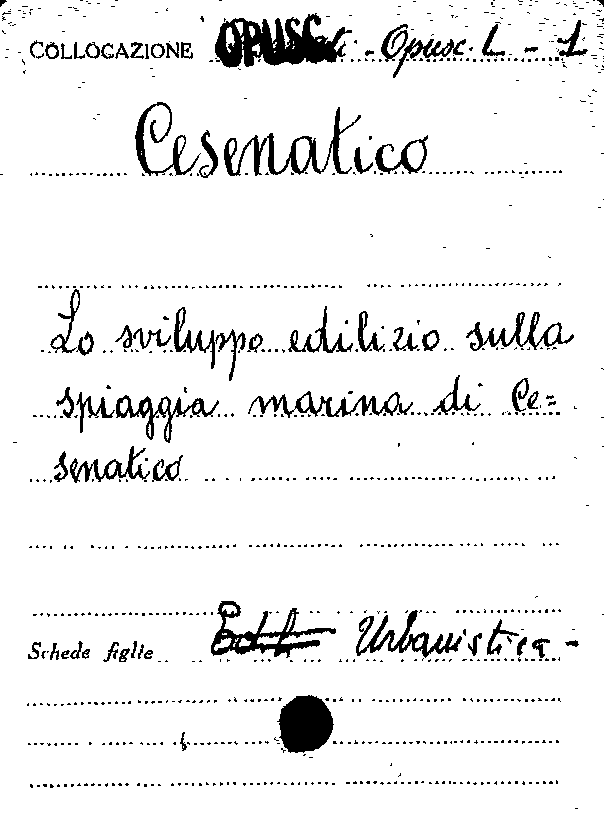 COLLOCAZIONE OPUSC. - Opusc. L - 1
Cesenatico
Lo sviluppo edilizio sulla
spiaggia marina di Ce=
senatico
Schede figlie Urbanistica -